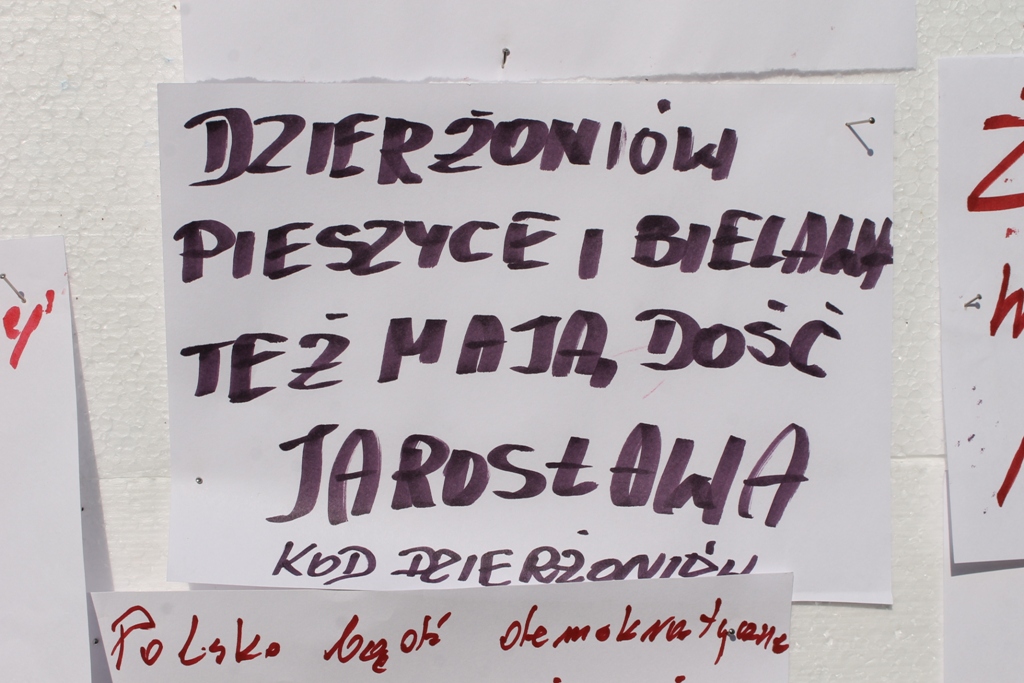 DZIERŻONIÓW
PIESZYCE I BIELAWA
TEŻ MAJĄ DOŚĆ
JAROSŁAWA
KOD DZIERŻONIÓW
Polsko bądź demokratyczna